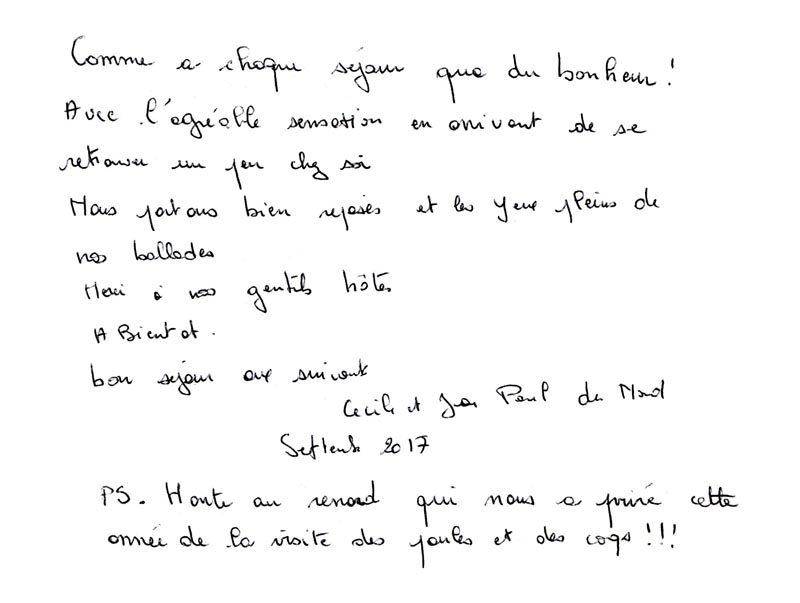 Comme a chaque séjour que du bonheur !
Avec l'agréable sensation en arrivant de se
retrouver un peu chez soi
Nous partons bien reposés et les yeux pleins de
nos ballades
Merci à nos gentils hôtes
A Bientot.
bon sejour aux suivants
Cecile et Jean Paul du Nord
Septembre 2017
PS. Honte au renard qui nous a privé cette
année de la visite des poules et des coqs !!!